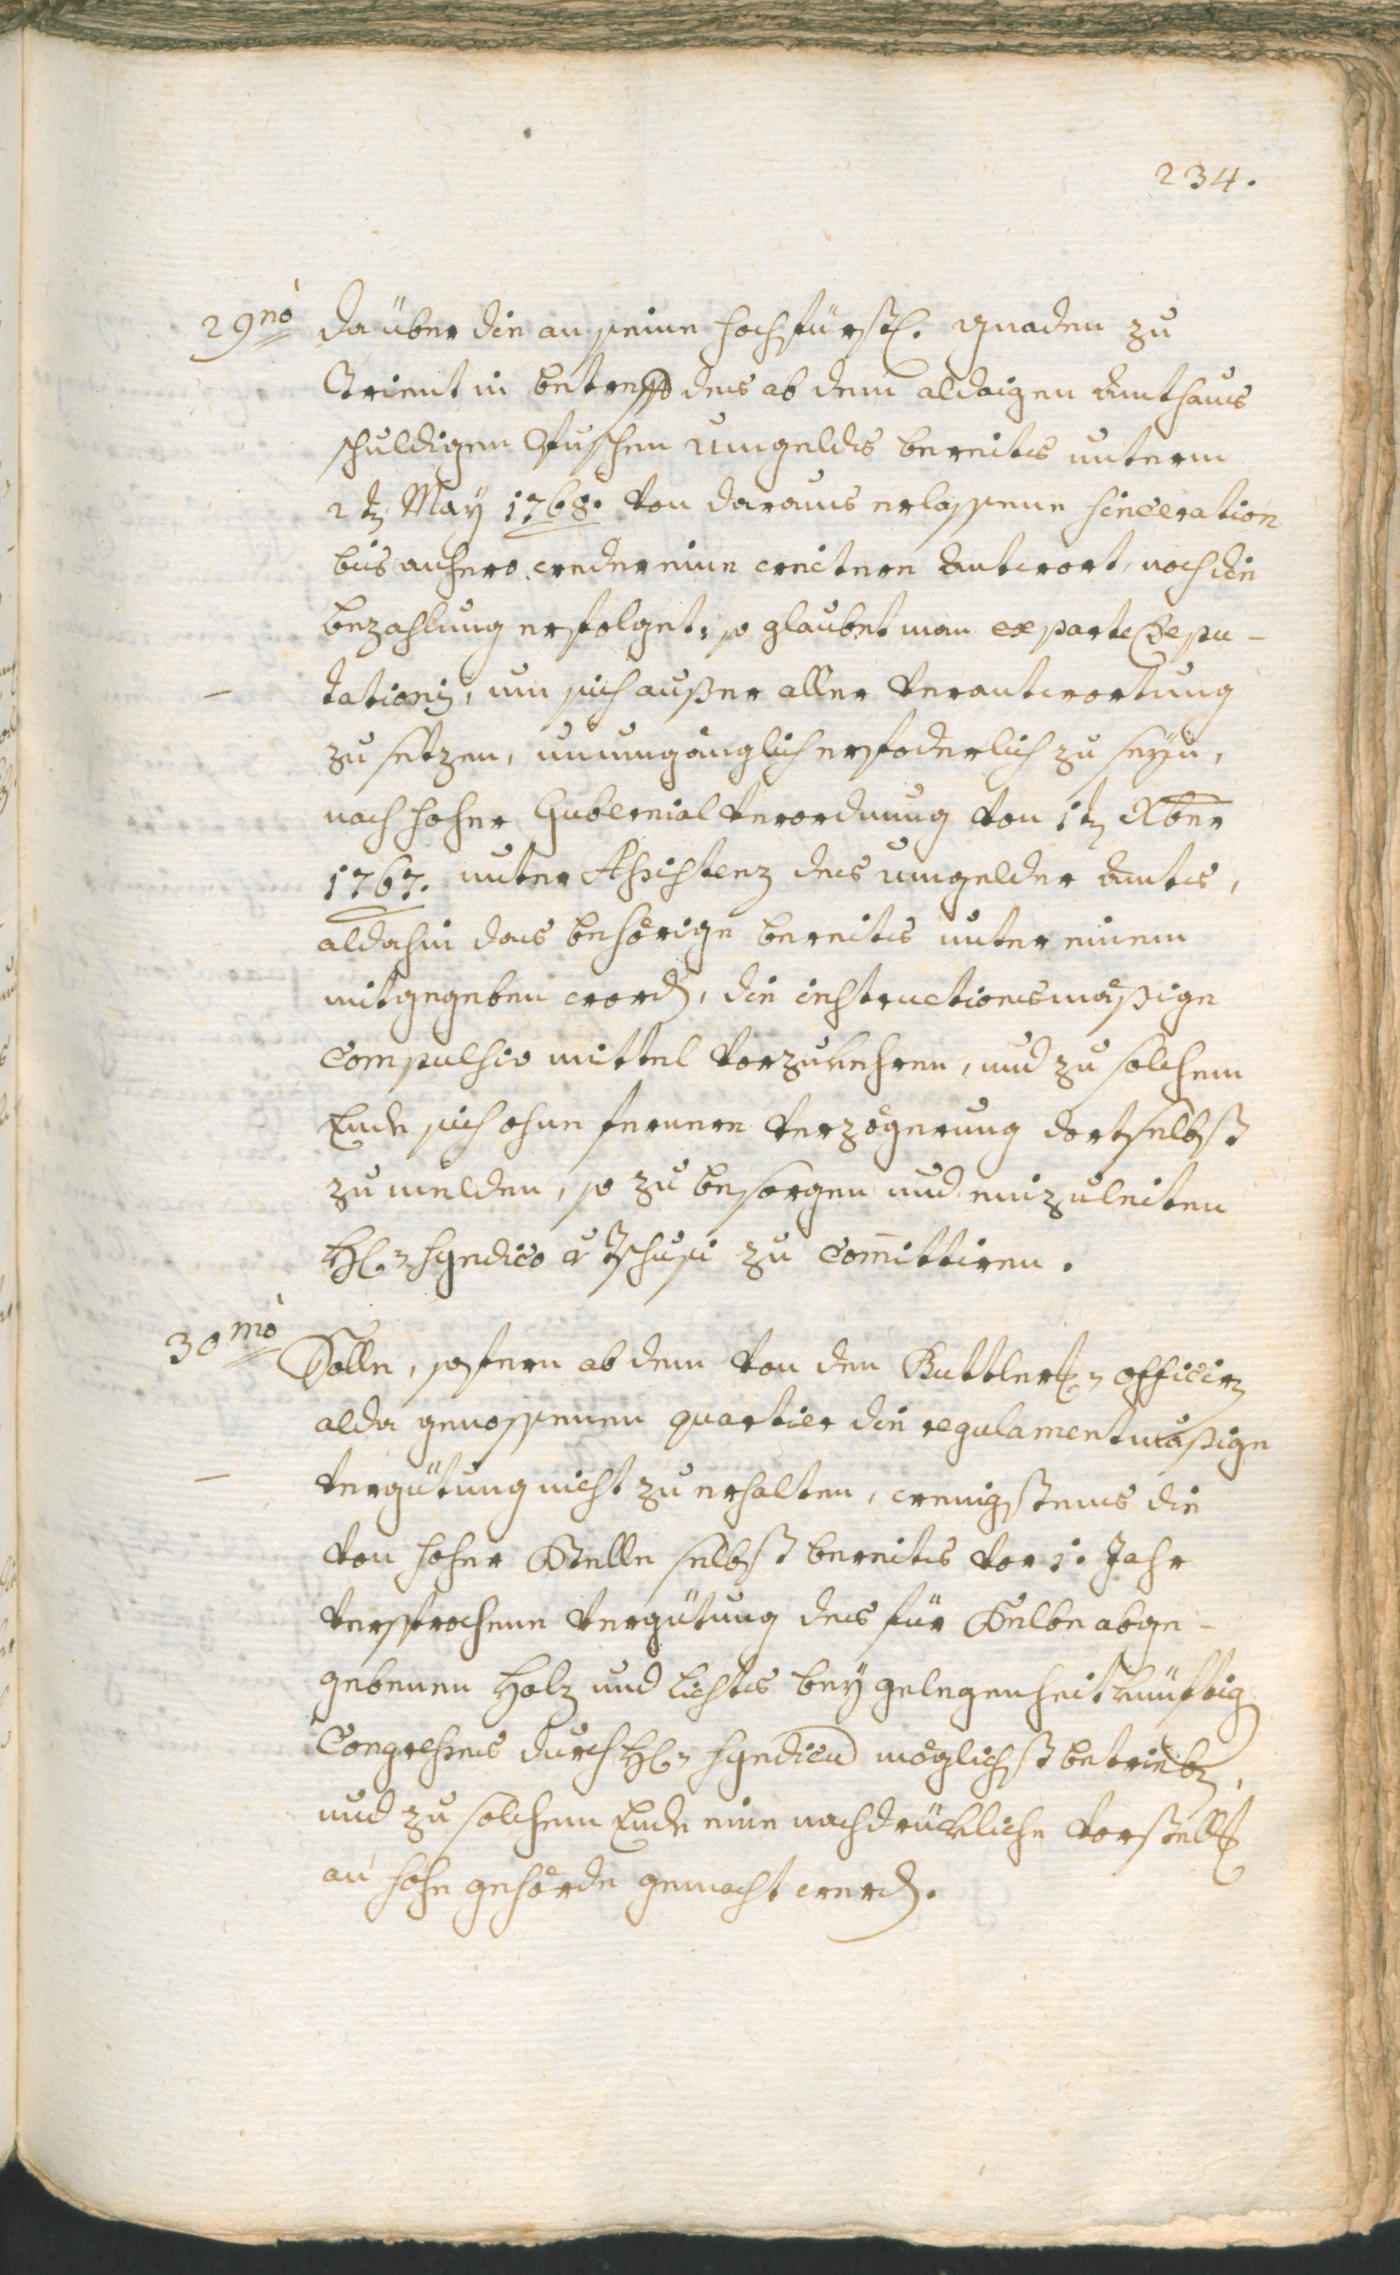 234.
29nò da über die an seine hochfürstl. gnaden zu
Trient in betreff des ab dem aldaigen Amthaus
schuldigen umgelds bereits unterm
2tn May 1768. von daraus erlassene sinceration
bis anhero weder eine weitere Antwort, noch die
bezahlung erfolget; so glaubet man ex parte Depu-
tationis, um sich außer aller verantwortung
zu setzen, unumgänglich erfoderlich zu seyn,
nach hoher Gubernial verordnung von 1tn Xber
1767. unter Assistenz des umgelder Amts,
aldahin das behörige bereits unter einem
mitgegeben word, die instructionsmäßige
Compulsiv mittel vorzukehren, und zu solchem
Ende sich ohne fernere verzögerung dortselbst
zu melden, so zu besorgen und einzuleiten
H. Syndico v Tschusi zu Com̄ittiren.
30mò Solle, sofern ab dem von den Buttler officirn
alda genossenen quartier die regulamentmäßige
vergütung nicht zu erhalten, wenigstens die
von hoher Stelle selbst bereits vor 1. Jahr
versprochene vergütung des für Selbe abge-
gebenen Holz und lichts bey gelegenheit künftig
Congresses durch H. Syndicu möglichst betriebn,
und zu solchem Ende eine nachdrückliche vorstellg
an hohe gehörde gemacht werd.